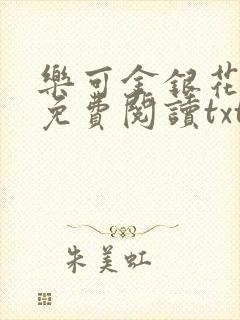 樂可金銀花
免費閱讀txt
朱美虹